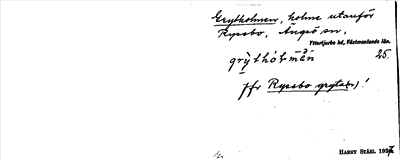 Grytholmen, holme utanför
Rynsbo, Ängsö sn,
Yttertjurbo hd, Västmanlands län.
grỳthòlmän 25.
jfr Rynsbo gryta(n)!
HARRY STÅHL 1937.